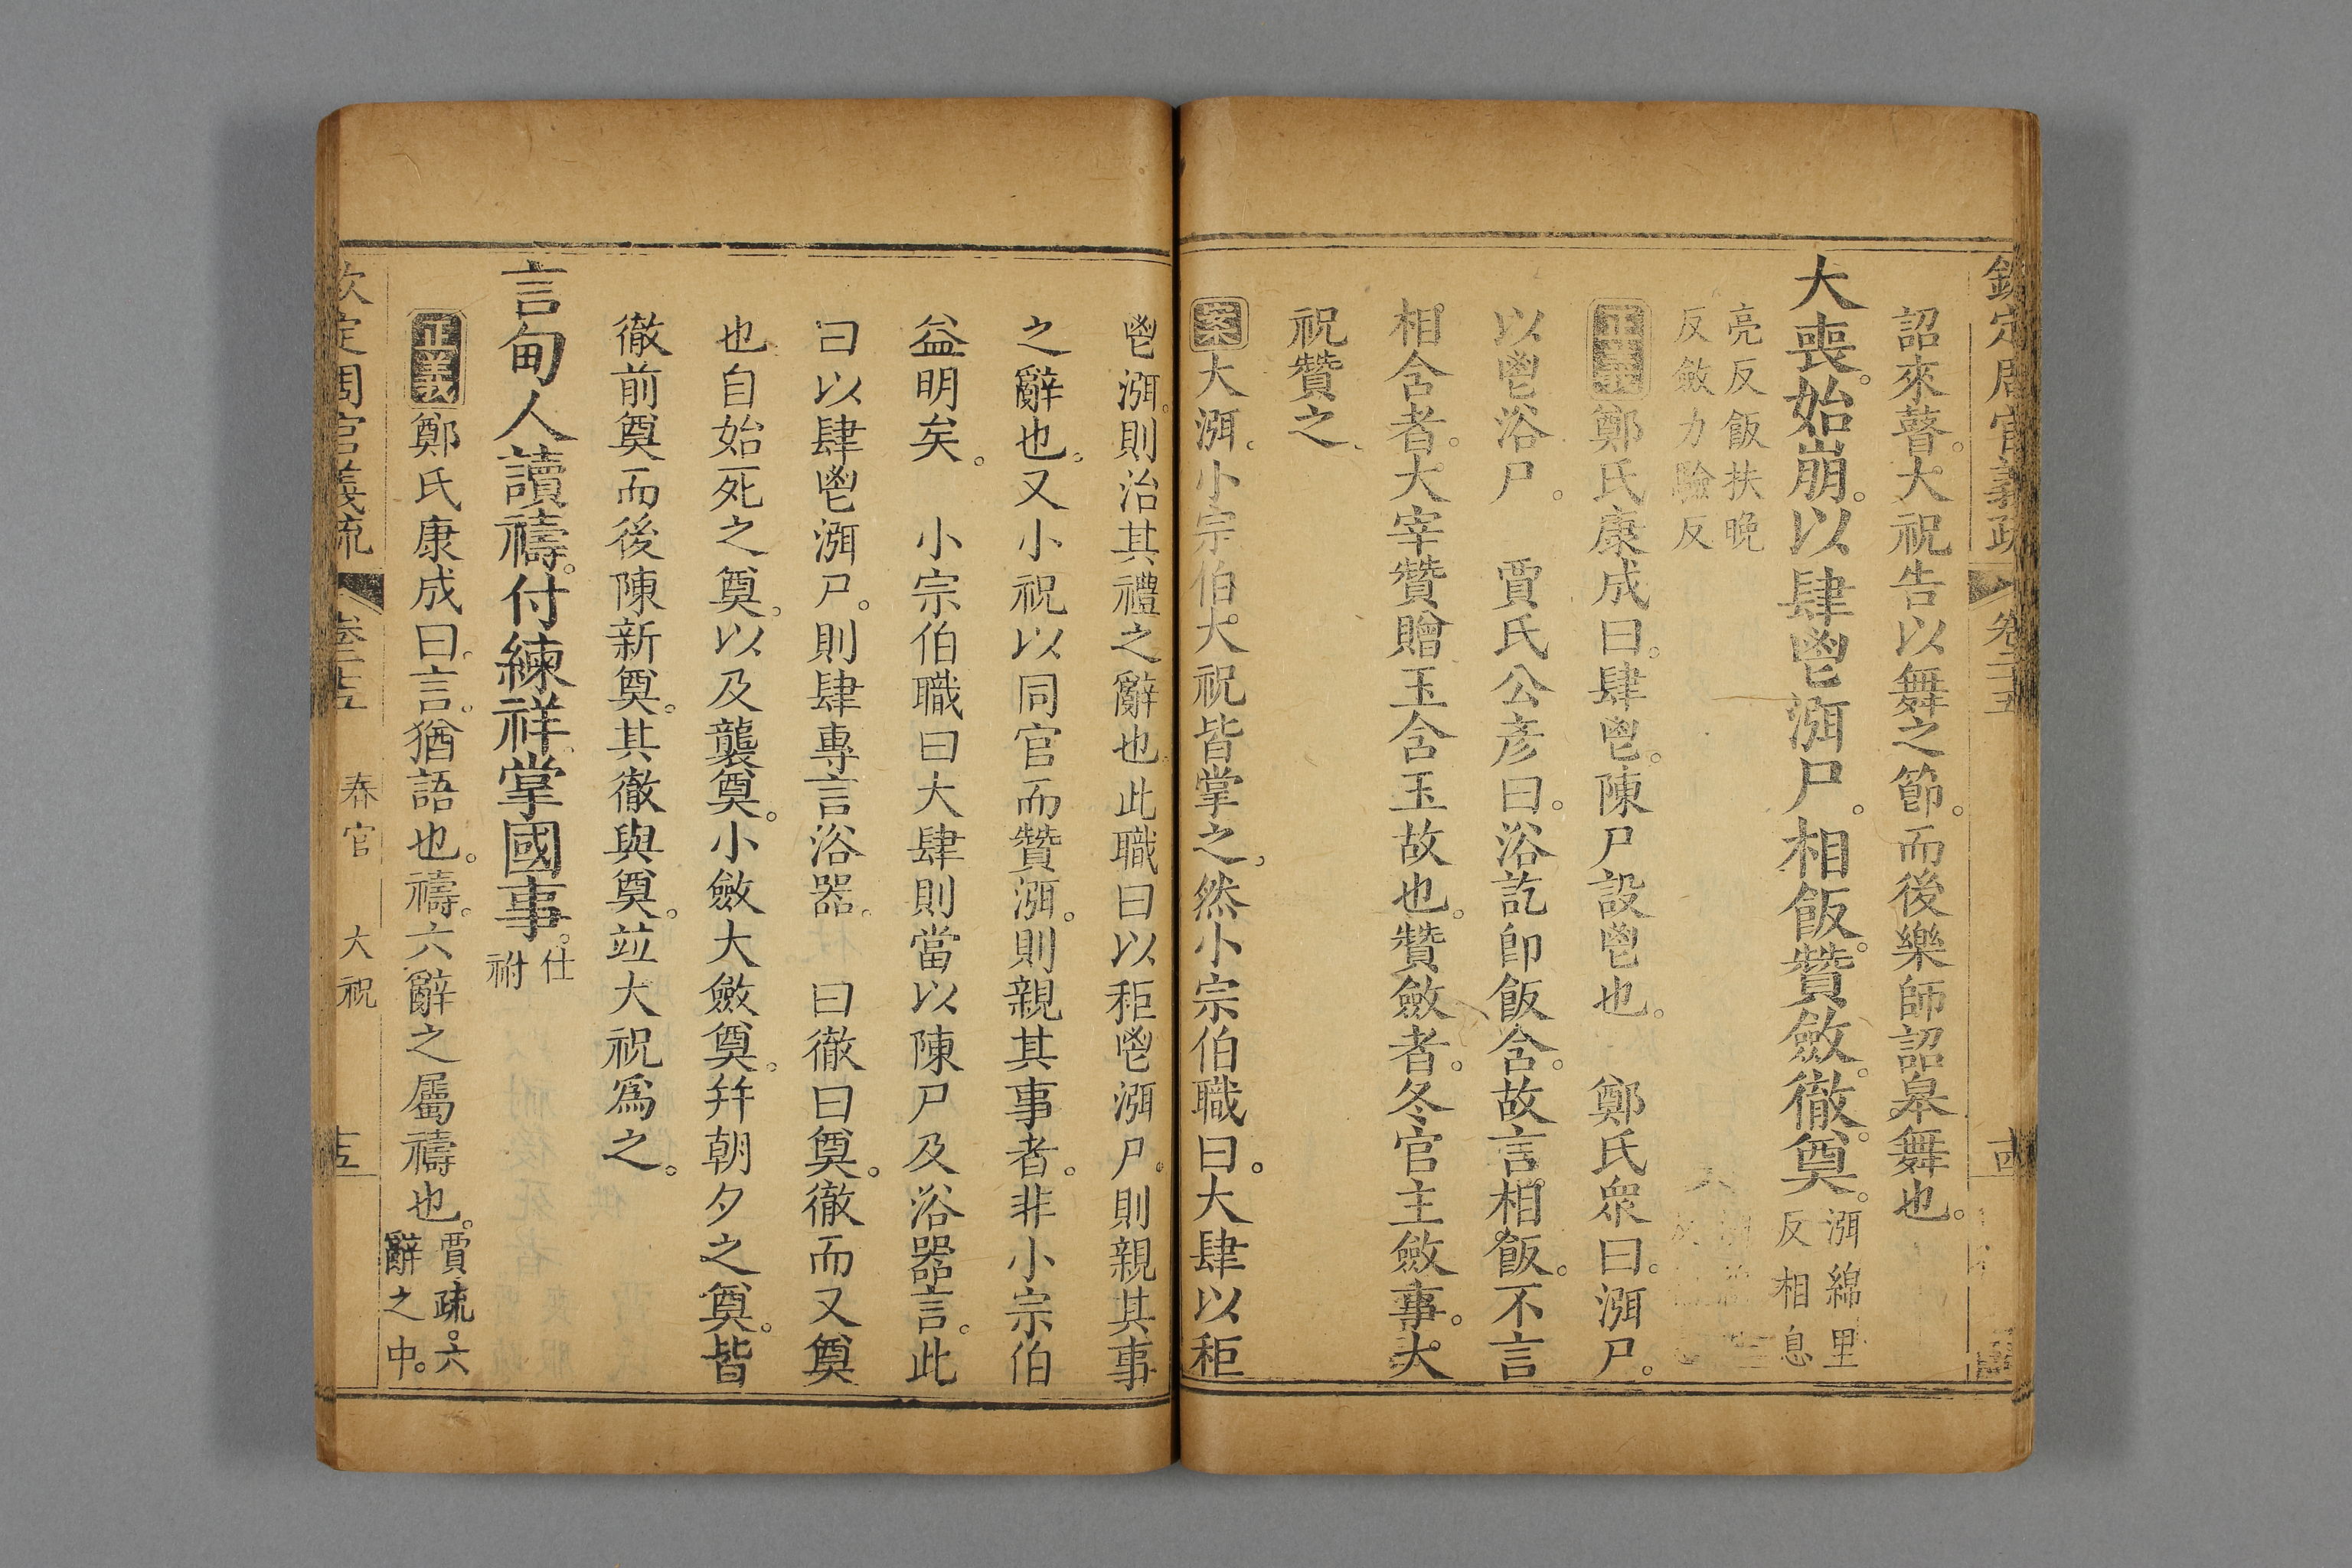 欽定周官義疏 卷二十五 十四
詔來瞽大祝告以舞之節而後樂師詔皋舞也
大喪始崩以肆鬯渳尸相飯贊斂徹奠渳綿里反相息
亮反飯扶晚反斂力驗反
正義鄭氏康成曰肆鬯陳尸設鬯也 鄭氏衆曰渳尸
以鬯浴尸 賈氏公彥曰浴訖卽飯含故言相飯不言
相含者大宰贊贈玉含玉故也贊斂者冬官主斂事大
祝贊之
案大渳小宗伯大祝皆掌之然小宗伯職曰大肆以秬
鬯渳則治其禮之辭也此職曰以秬鬯渳尸則親其事
之辭也又小祝以同官而贊渳則親其事者非小宗伯
益明矣 小宗伯職曰大肆則當以陳尸及浴器言此
曰以肆鬯渳尸則肆專言浴器 曰徹曰奠徹而又奠
也自始死之奠以及襲奠小斂大斂奠幷朝夕之奠皆
徹前奠而後陳新奠其徹與奠竝大祝爲之
言甸人讀禱付練祥掌國事付祔
正義鄭氏康成曰言猶語也禱六辭之屬禱也賈疏六辭之中
欽定周官義疏 卷二十五 春官 大祝 十五